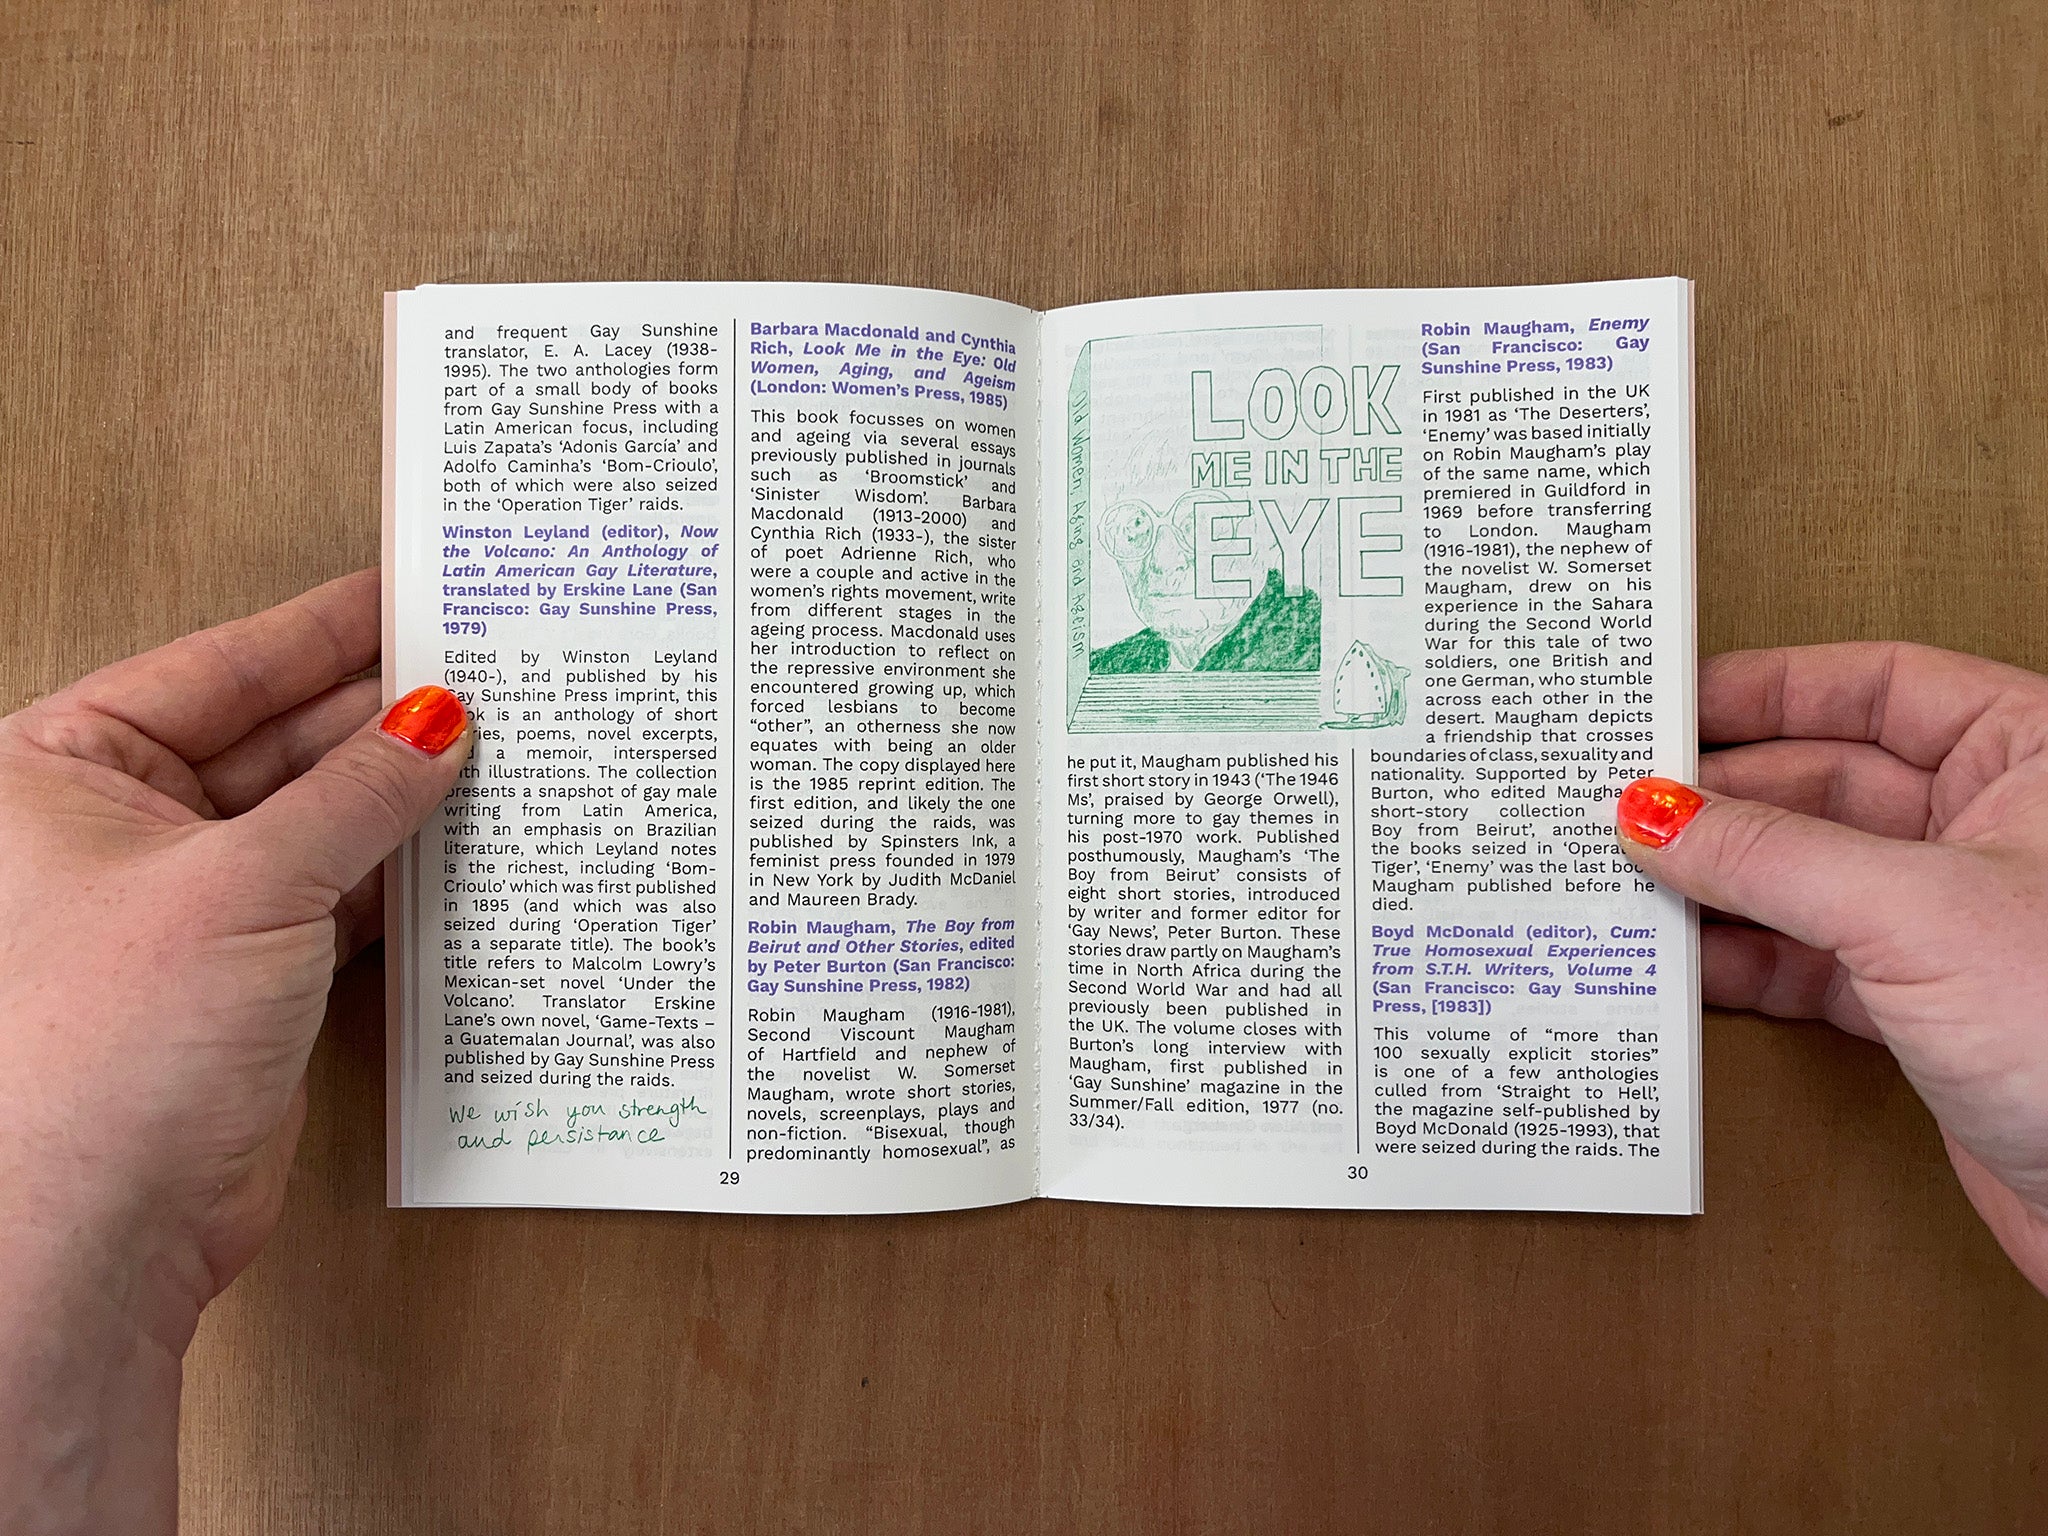 and frequent Gay Sunshine
translator, E. A. Lacey (1938-
1995). The two anthologies form
part of a small body of books
from Gay Sunshine Press with a
Latin American focus, including
Luis Zapata's 'Adonis García' and
Adolfo Caminha's 'Bom-Crioulo',
both of which were also seized
in the 'Operation Tiger' raids.
Winston Leyland (editor), Now
the Volcano: An Anthology of
Latin American Gay Literature,
translated by Erskine Lane (San
Francisco: Gay Sunshine Press,
1979)
Edited by Winston Leyland
(1940-), and published by his
Gay Sunshine Press imprint, this
is an anthology of short
poems, novel excerpts,
a memoir, interspersed
with illustrations. The collection
presents a snapshot of gay male
writing from Latin America,
with an emphasis on Brazilian
literature, which Leyland notes
is the richest, including 'Bom-
Crioulo' which was first published
in 1895 (and which was also
seized during 'Operation Tiger'
as a separate title). The book's
title refers to Malcolm Lowry's
Mexican-set novel 'Under the
Volcano'. Translator Erskine
Lane's own novel, 'Game-Texts –
a Guatemalan Journal', was also
published by Gay Sunshine Press
and seized during the raids.
We wish you strength
and persistance
Barbara Macdonald and Cynthia
Rich, Look Me in the Eye: Old
Women, Aging, and Ageism
(London: Women's Press, 1985)
This book focusses on women
and ageing via several essays
previously published in journals
such as 'Broomstick' and
'Sinister Wisdom'. Barbara
Macdonald (1913-2000) and
Cynthia Rich (1933-), the sister
of poet Adrienne Rich, who
were a couple and active in the
women's rights movement, write
from different stages in the
ageing process. Macdonald uses
her introduction to reflect on
the repressive environment she
encountered growing up, which
forced lesbians to become
"other", an otherness she now
equates with being an older
woman. The copy displayed here
is the 1985 reprint edition. The
first edition, and likely the one
seized during the raids, was
published by Spinsters Ink, a
feminist press founded in 1979
in New York by Judith McDaniel
and Maureen Brady.
Robin Maugham, The Boy from
Beirut and Other Stories, edited
by Peter Burton (San Francisco:
Gay Sunshine Press, 1982)
Robin Maugham (1916-1981),
Second Viscount Maugham
of Hartfield and nephew of
the novelist W. Somerset
Maugham, wrote short stories,
novels, screenplays, plays and
non-fiction. "Bisexual, though
predominantly homosexual", as
29
Old Women, Aging and Ageism
LOOK
ME IN THE
EYE
he put it, Maugham published his
first short story in 1943 ('The 1946
Ms', praised by George Orwell),
turning more to gay themes in
his post-1970 work. Published
posthumously, Maugham's 'The
Boy from Beirut' consists of
eight short stories, introduced
by writer and former editor for
'Gay News', Peter Burton. These
stories draw partly on Maugham's
time in North Africa during the
Second World War and had all
previously been published in
the UK. The volume closes with
Burton's long interview with
Maugham, first published in
'Gay Sunshine' magazine in the
Summer/Fall edition, 1977 (no.
33/34).
Robin Maugham, Enemy
(San Francisco: Gay
Sunshine Press, 1983)
First published in the UK
in 1981 as 'The Deserters',
'Enemy' was based initially
on Robin Maugham's play
of the same name, which
premiered in Guildford in
1969 before transferring
to London. Maugham
(1916-1981), the nephew of
the novelist W. Somerset
Maugham, drew on his
experience in the Sahara
during the Second World
War for this tale of two
soldiers, one British and
one German, who stumble
across each other in the
desert. Maugham depicts
a friendship that crosses
boundaries of class, sexuality and
nationality. Supported by Peter
Burton, who edited
short-story collection
Boy from Beirut', another
the books seized in
Tiger', 'Enemy' was the last book
Maugham published before he
died.
Boyd McDonald (editor), Cum:
True Homosexual Experiences
from S.T.H. Writers, Volume 4
(San Francisco: Gay Sunshine
Press, [1983])
This volume of "more than
100 sexually explicit stories"
is one of a few anthologies
culled from 'Straight to Hell',
the magazine self-published by
Boyd McDonald (1925-1993), that
were seized during the raids. The
30